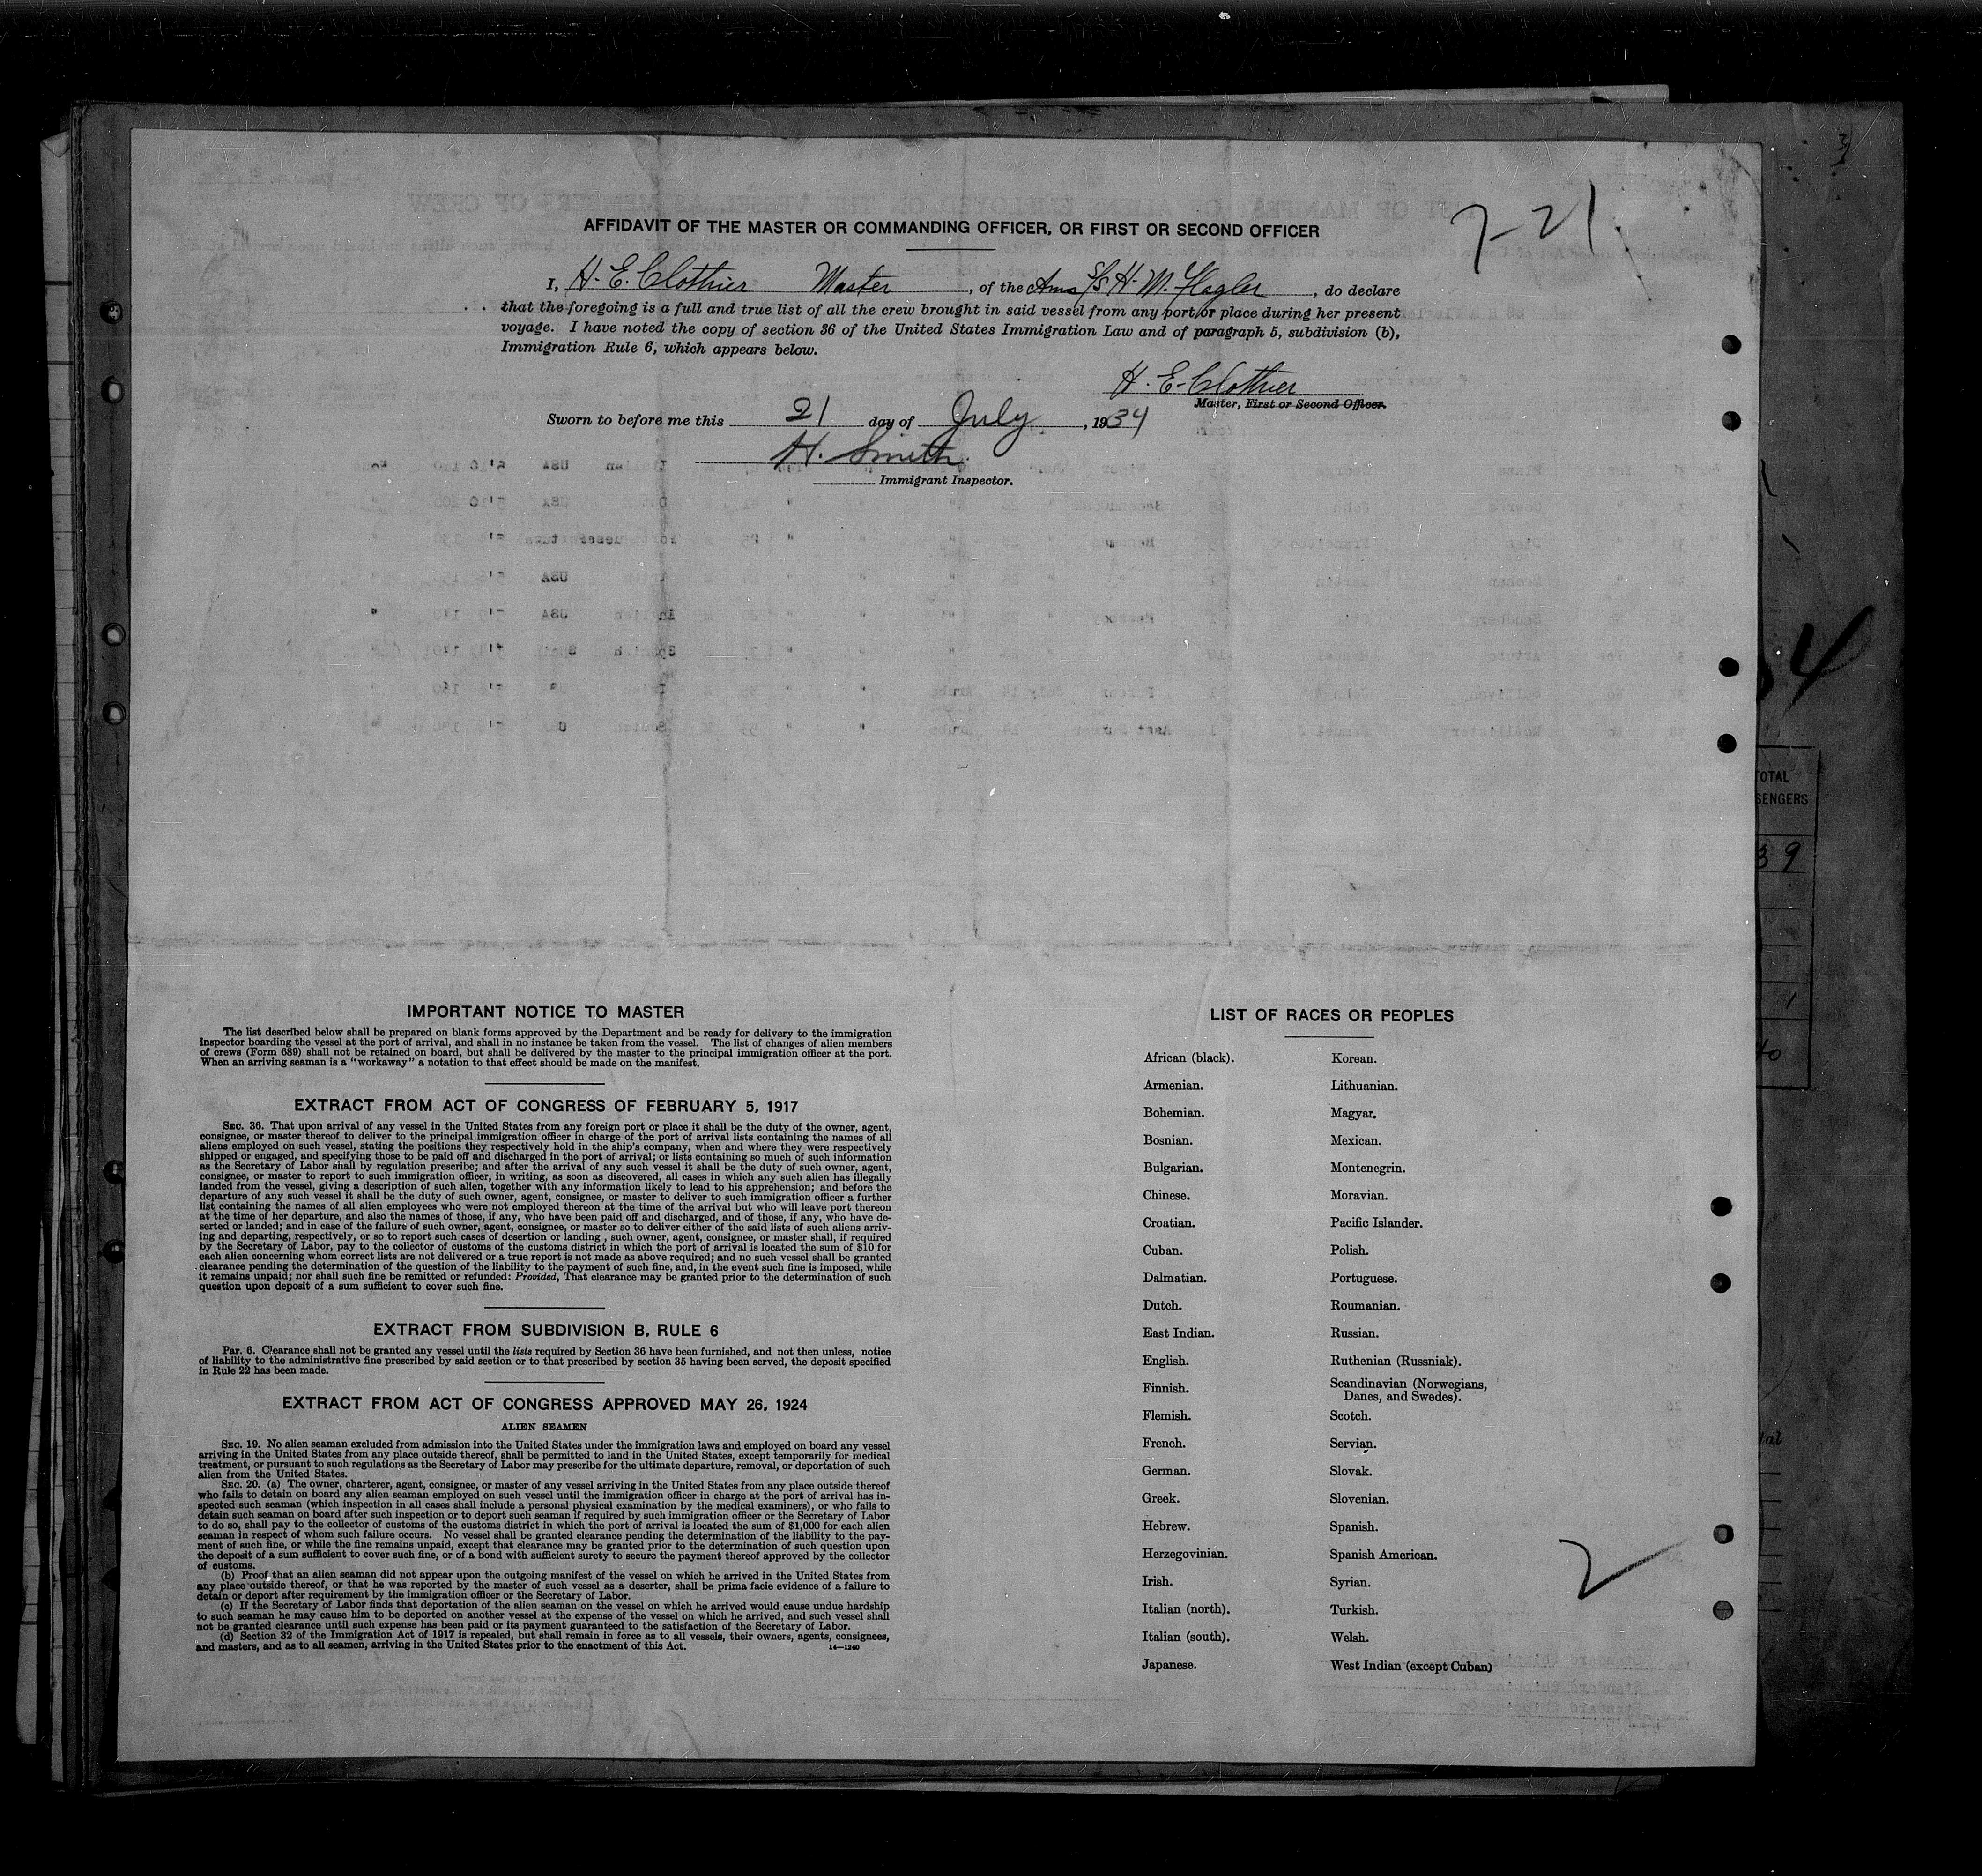 7-21
AFFIDAVIT OF THE MASTER OR COMMANDING OFFICER, OR FIRST OR SECOND OFFICER
I, H. E. Clothier Master, of the Ams/S H. M. Flagler, do declare
that the foregoing is a full and true list of all the crew brought in said vessel from any port or place during her present
voyage. I have noted the copy of section 36 of the United States Immigration Law and of paragraph 5, subdivision (b),
Immigration Rule 6, which appears below.
H. E. Clothier
Master, First or Second Officer.
Sworn to before me this 21 day of July, 1934
H. Smith
Immigrant Inspector.
4
TOTAL
SENGERS
39
1
40
IMPORTANT NOTICE TO MASTER
The list described below shall be prepared on blank forms approved by the Department and be ready for delivery to the immigration
inspector boarding the vessel at the port of arrival, and shall in no instance be taken from the vessel. The list of changes of alien members
of crews (Form 689) shall not be retained on board, but shall be delivered by the master to the principal immigration officer at the port.
When an arriving seaman is a "workaway" a notation to that effect should be made on the manifest.
EXTRACT FROM ACT OF CONGRESS OF FEBRUARY 5, 1917
SEC. 36. That upon arrival of any vessel in the United States from any foreign port or place it shall be the duty of the owner, agent,
consignee, or master thereof to deliver to the principal immigration officer in charge of the port of arrival lists containing the names of all
aliens employed on such vessel, stating the positions they respectively hold in the ship's company, when and where they were respectively
shipped or engaged, and specifying those to be paid off and discharged in the port of arrival; or lists containing so much of such information
as the Secretary of Labor shall by regulation prescribe; and after the arrival of any such vessel it shall be the duty of such owner, agent,
consignee, or master to report to such immigration officer, in writing, as soon as discovered, all cases in which any such alien has illegally
landed from the vessel, giving a description of such alien, together with any information likely to lead to his apprehension; and before the
departure of any such vessel it shall be the duty of such owner, agent, consignee, or master to deliver to such immigration officer a further
list containing the names of all alien employees who were not employed thereon at the time of the arrival but who will leave port thereon
at the time of her departure, and also the names of those, if any, who have been paid off and discharged, and of those, if any, who have de-
serted or landed; and in case of the failure of such owner, agent, consignee, or master so to deliver either of the said lists of such aliens arriv-
ing and departing, respectively, or so to report such cases of desertion or landing , such owner, agent, consignee, or master shall, if required
by the Secretary of Labor, pay to the collector of customs of the customs district in which the port of arrival is located the sum of $10 for
each alien concerning whom correct lists are not delivered or a true report is not made as above required; and no such vessel shall be granted
clearance pending the determination of the question of the liability to the payment of such fine, and, in the event such fine is imposed, while
it remains unpaid; nor shall such fine be remitted or refunded: Provided, That clearance may be granted prior to the determination of such
question upon deposit of a sum sufficient to cover such fine.
EXTRACT FROM SUBDIVISION B, RULE 6
Par. 6. Clearance shall not be granted any vessel until the lists required by Section 36 have been furnished, and not then unless, notice
of liability to the administrative fine prescribed by said section or to that prescribed by section 35 having been served, the deposit specified
in Rule 22 has been made.
EXTRACT FROM ACT OF CONGRESS APPROVED MAY 26, 1924
ALIEN SEAMEN
SEC. 19. No alien seaman excluded from admission into the United States under the immigration laws and employed on board any vessel
arriving in the United States from any place outside thereof, shall be permitted to land in the United States, except temporarily for medical
treatment, or pursuant to such regulations as the Secretary of Labor may prescribe for the ultimate departure, removal, or deportation of such
alien from the United States.
SEC. 20. (a) The owner, charterer, agent, consignee, or master of any vessel arriving in the United States from any place outside thereof
who fails to detain on board any alien seaman employed on such vessel until the immigration officer in charge at the port of arrival has in-
spected such seaman (which inspection in all cases shall include a personal physical examination by the medical examiners), or who fails to
detain such seaman on board after such inspection or to deport such seaman if required by such immigration officer or the Secretary of Labor
to do so, shall pay to the collector of customs of the customs district in which the port of arrival is located the sum of $1,000 for each alien
seaman in respect of whom such failure occurs. No vessel shall be granted clearance pending the determination of the liability to the pay-
ment of such fine, or while the fine remains unpaid, except that clearance may be granted prior to the determination of such question upon
the deposit of a sum sufficient to cover such fine, or of a bond with sufficient surety to secure the payment thereof approved by the collector
of customs.
(b) Proof that an alien seaman did not appear upon the outgoing manifest of the vessel on which he arrived in the United States from
any place outside thereof, or that he was reported by the master of such vessel as a deserter, shall be prima facie evidence of a failure to
detain or deport after requirement by the immigration officer or the Secretary of Labor.
(c) If the Secretary of Labor finds that deportation of the alien seaman on the vessel on which he arrived would cause undue hardship
to such seaman he may cause him to be deported on another vessel at the expense of the vessel on which he arrived, and such vessel shall
not be granted clearance until such expense has been paid or its payment guaranteed to the satisfaction of the Secretary of Labor.
(d) Section 32 of the Immigration Act of 1917 is repealed, but shall remain in force as to all vessels, their owners, agents, consignees,
and masters, and as to all seamen, arriving in the United States prior to the enactment of this Act.
14—1240
LIST OF RACES OR PEOPLES
African (black).
Armenian.
Bohemian.
Bosnian.
Bulgarian.
Chinese.
Croatian.
Cuban.
Dalmatian.
Dutch.
East Indian.
English.
Finnish.
Flemish.
French.
German.
Greek.
Hebrew.
Herzegovinian.
Irish.
Italian (north).
Italian (south).
Japanese.
Korean.
Lithuanian.
Magyar.
Mexican.
Montenegrin.
Moravian.
Pacific Islander.
Polish.
Portuguese.
Roumanian.
Russian.
Ruthenian (Russniak).
Scandinavian (Norwegians,
Danes, and Swedes).
Scotch.
Servian.
Slovak.
Slovenian.
Spanish.
Spanish American.
Syrian.
Turkish.
Welsh.
West Indian (except Cuban)
2